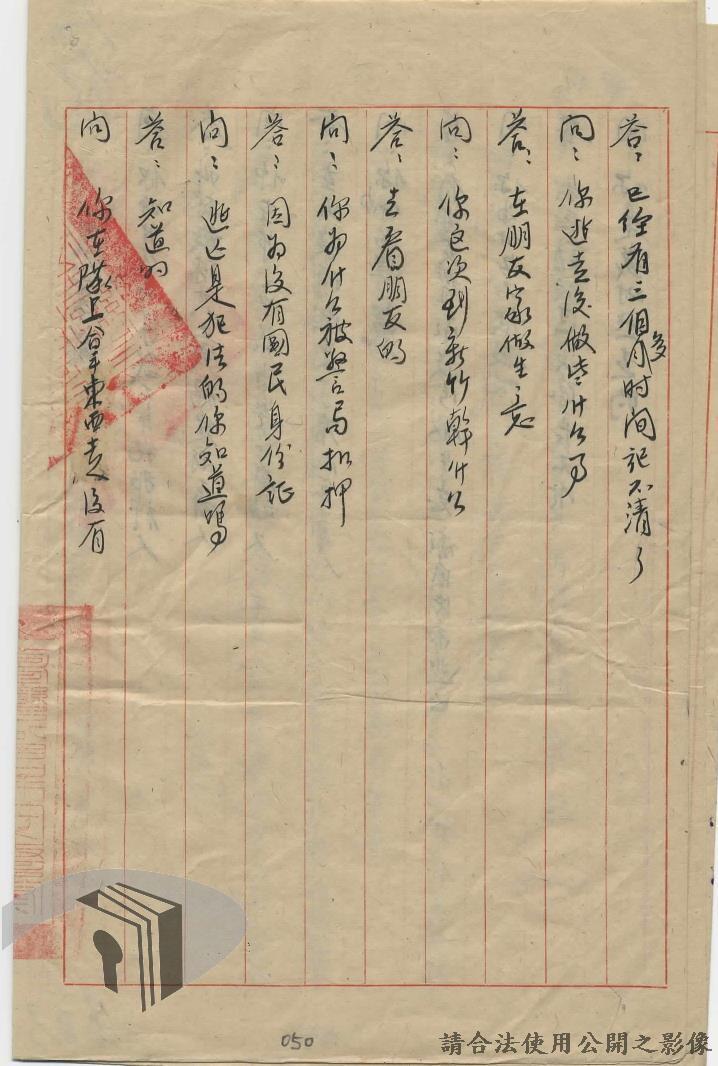 答：已經有三個多月时间記不清了
问：你逃走後做些什么事
答：在朋友家做生意
问：你这次到新竹幹什么
答：去看朋友的
问：你为什么被警局扣押
答：因为没有國民身份証
问：逃亡是犯法的你知道嗎
答：知道的
问 你在隊上拿東西走没有
050
請合法使用公開之影像